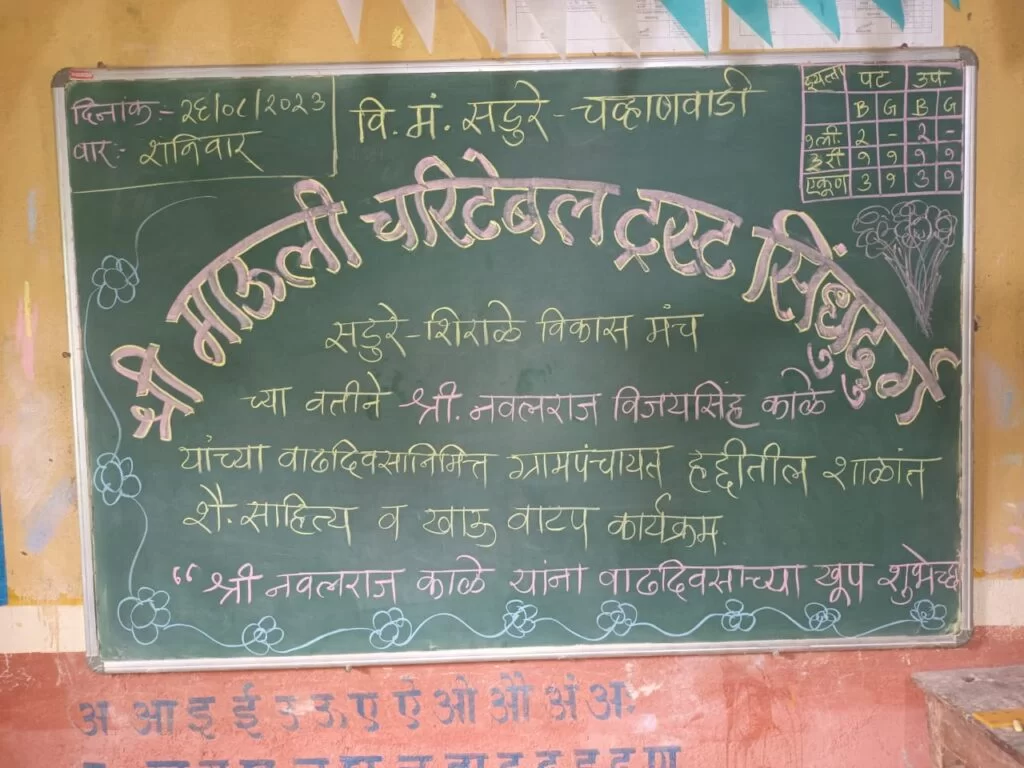 दिनांक:- २६/०८/२०२३
वार:- शनिवार
वि. मं. सडुरे - चव्हाणवाडी
इयत्ता पट उप.
B G B G
१ली. २ - २ -
३री १ १ १ १
एकूण ३ १ ३ १
श्री माऊली चॅरिटेबल ट्रस्ट सिंधुदुर्ग
सडुरे-शिराळे विकास मंच
च्या वतीने श्री. नवलराज विजयसिंह काळे
यांच्या वाढदिवसानिमित्त ग्रामपंचायत हद्दीतील शाळांत
शै. साहित्य व खाऊ वाटप कार्यक्रम.
“ श्री नवलराज काळे यांना वाढदिवसाच्या खूप शुभेच्छा
अ आ इ ई उ ऊ ए ऐ ओ औ अं अः